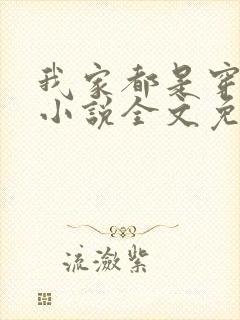 我家都是穿
小说全文免
流潋紫